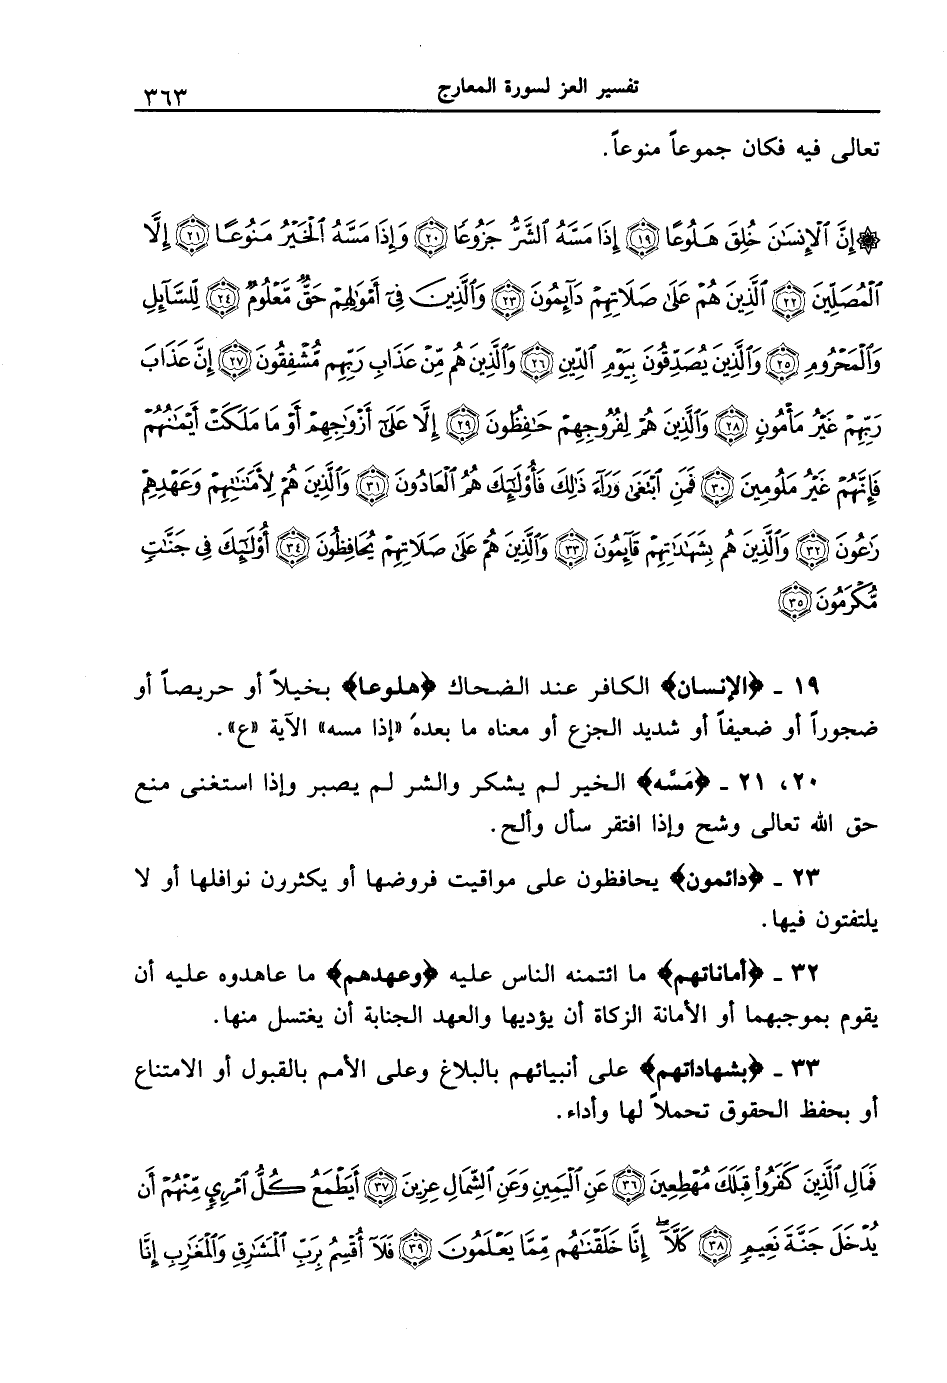 تفسير العز لسورة المعارج
٣٦٣
تعالى فيه فكان جموعاً منوعاً.
۞ إِنَّ ٱلْإِنسَٰنَ خُلِقَ هَلُوعًا ﴿١٩﴾ إِذَا مَسَّهُ ٱلشَّرُّ جَزُوعًا ﴿٢٠﴾ وَإِذَا مَسَّهُ ٱلْخَيْرُ مَنُوعًا ﴿٢١﴾ إِلَّا
ٱلْمُصَلِّينَ ﴿٢٢﴾ ٱلَّذِينَ هُمْ عَلَىٰ صَلَاتِهِمْ دَآئِمُونَ ﴿٢٣﴾ وَٱلَّذِينَ فِىٓ أَمْوَٰلِهِمْ حَقٌّ مَّعْلُومٌ ﴿٢٤﴾ لِّلسَّآئِلِ
وَٱلْمَحْرُومِ ﴿٢٥﴾ وَٱلَّذِينَ يُصَدِّقُونَ بِيَوْمِ ٱلدِّينِ ﴿٢٦﴾ وَٱلَّذِينَ هُم مِّنْ عَذَابِ رَبِّهِم مُّشْفِقُونَ ﴿٢٧﴾ إِنَّ عَذَابَ
رَبِّهِمْ غَيْرُ مَأْمُونٍ ﴿٢٨﴾ وَٱلَّذِينَ هُمْ لِفُرُوجِهِمْ حَٰفِظُونَ ﴿٢٩﴾ إِلَّا عَلَىٰٓ أَزْوَٰجِهِمْ أَوْ مَا مَلَكَتْ أَيْمَٰنُهُمْ
فَإِنَّهُمْ غَيْرُ مَلُومِينَ ﴿٣٠﴾ فَمَنِ ٱبْتَغَىٰ وَرَآءَ ذَٰلِكَ فَأُو۟لَٰٓئِكَ هُمُ ٱلْعَادُونَ ﴿٣١﴾ وَٱلَّذِينَ هُمْ لِأَمَٰنَٰتِهِمْ وَعَهْدِهِمْ
رَٰعُونَ ﴿٣٢﴾ وَٱلَّذِينَ هُم بِشَهَٰدَٰتِهِمْ قَآئِمُونَ ﴿٣٣﴾ وَٱلَّذِينَ هُمْ عَلَىٰ صَلَاتِهِمْ يُحَافِظُونَ ﴿٣٤﴾ أُو۟لَٰٓئِكَ فِى جَنَّٰتٍ
مُّكْرَمُونَ ﴿٣٥﴾
١٩ ـ ﴿الإنسان﴾ الكافر عند الضحاك ﴿هلوعا﴾ بخيلاً أو حريصاً أو
ضجوراً أو ضعيفاً أو شديد الجزع أو معناه ما بعده «إذا مسه» الآية «ع».
٢٠، ٢١ ـ ﴿مَسَّه﴾ الخير لم يشكر والشر لم يصبر وإذا استغنى منع
حق الله تعالى وشح وإذا افتقر سأل وألح.
٢٣ ـ ﴿دائمون﴾ يحافظون على مواقيت فروضها أو يكثرون نوافلها أو لا
يلتفتون فيها.
٣٢ ـ ﴿أماناتهم﴾ ما ائتمنه الناس عليه ﴿وعهدهم﴾ ما عاهدوه عليه أن
يقوم بموجبهما أو الأمانة الزكاة أن يؤديها والعهد الجنابة أن يغتسل منها.
٣٣ ـ ﴿بشهاداتهم﴾ على أنبيائهم بالبلاغ وعلى الأمم بالقبول أو الامتناع
أو بحفظ الحقوق تحملاً لها وأداء.
فَمَالِ ٱلَّذِينَ كَفَرُوا۟ قِبَلَكَ مُهْطِعِينَ ﴿٣٦﴾ عَنِ ٱلْيَمِينِ وَعَنِ ٱلشِّمَالِ عِزِينَ ﴿٣٧﴾ أَيَطْمَعُ كُلُّ ٱمْرِئٍ مِّنْهُمْ أَن
يُدْخَلَ جَنَّةَ نَعِيمٍ ﴿٣٨﴾ كَلَّآ ۖ إِنَّا خَلَقْنَٰهُم مِّمَّا يَعْلَمُونَ ﴿٣٩﴾ فَلَآ أُقْسِمُ بِرَبِّ ٱلْمَشَٰرِقِ وَٱلْمَغَٰرِبِ إِنَّا